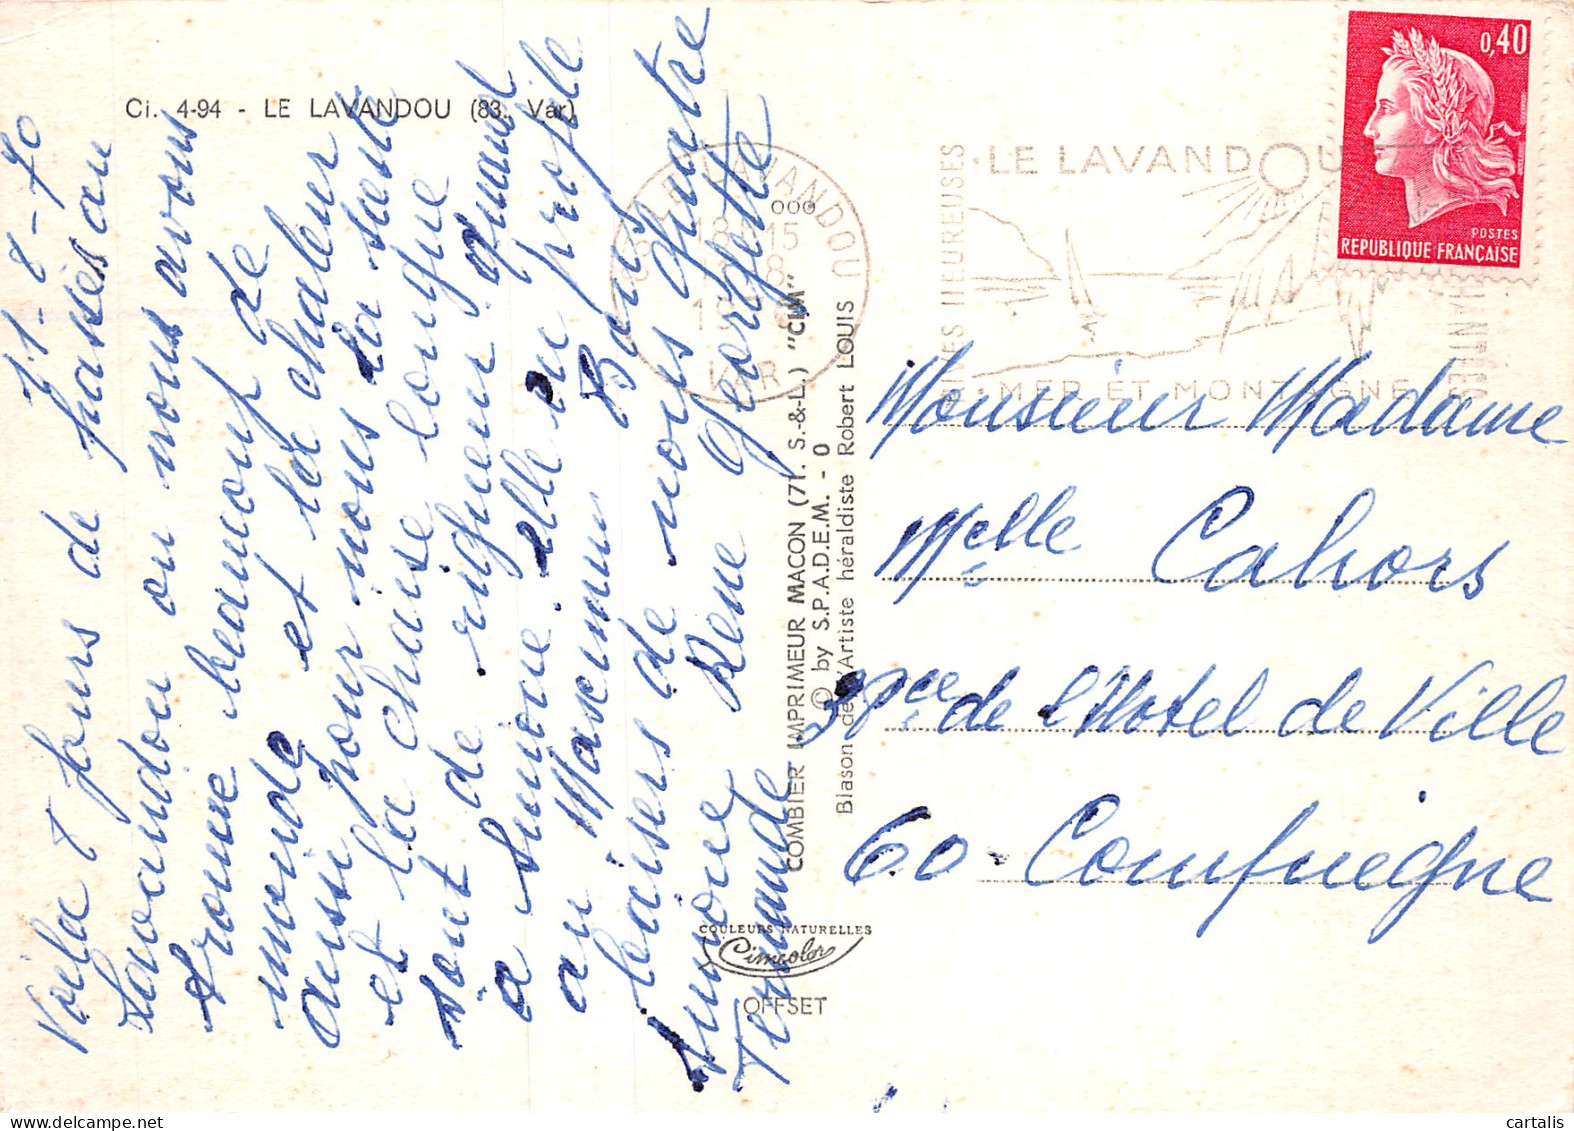 Ci. 4-94 - LE LAVANDOU (83. Var)
31-8-70
Voila 8 jours de passés au
Lavandou ou nous avons
trouve beaucoup de
monde et la chaleur
aussi pour nous la sieste
et la chaise longue
sont de rigueur quand
a Simone elle en profite
au Maximum Bons
baisers de nous quatre
Simone Rene Georgette
Fernande
COMBIER IMPRIMEUR MACON (71. S.-&-L.) "CIM"
© by S.P.A.D.E.M. - O
Blason de l'Artiste héraldiste Robert LOUIS
COULEURS NATURELLES
Cimcolor
OFFSET
LE LAVANDOU
18H15
VAR
· LE LAVANDOU
HEUREUSES
· MER ET MONTAGNE
0,40
POSTES
REPUBLIQUE FRANÇAISE
Monsieur Madame
Melle Cahors
3 pce de l'Hotel de Ville
60 Compiegne
cartalis